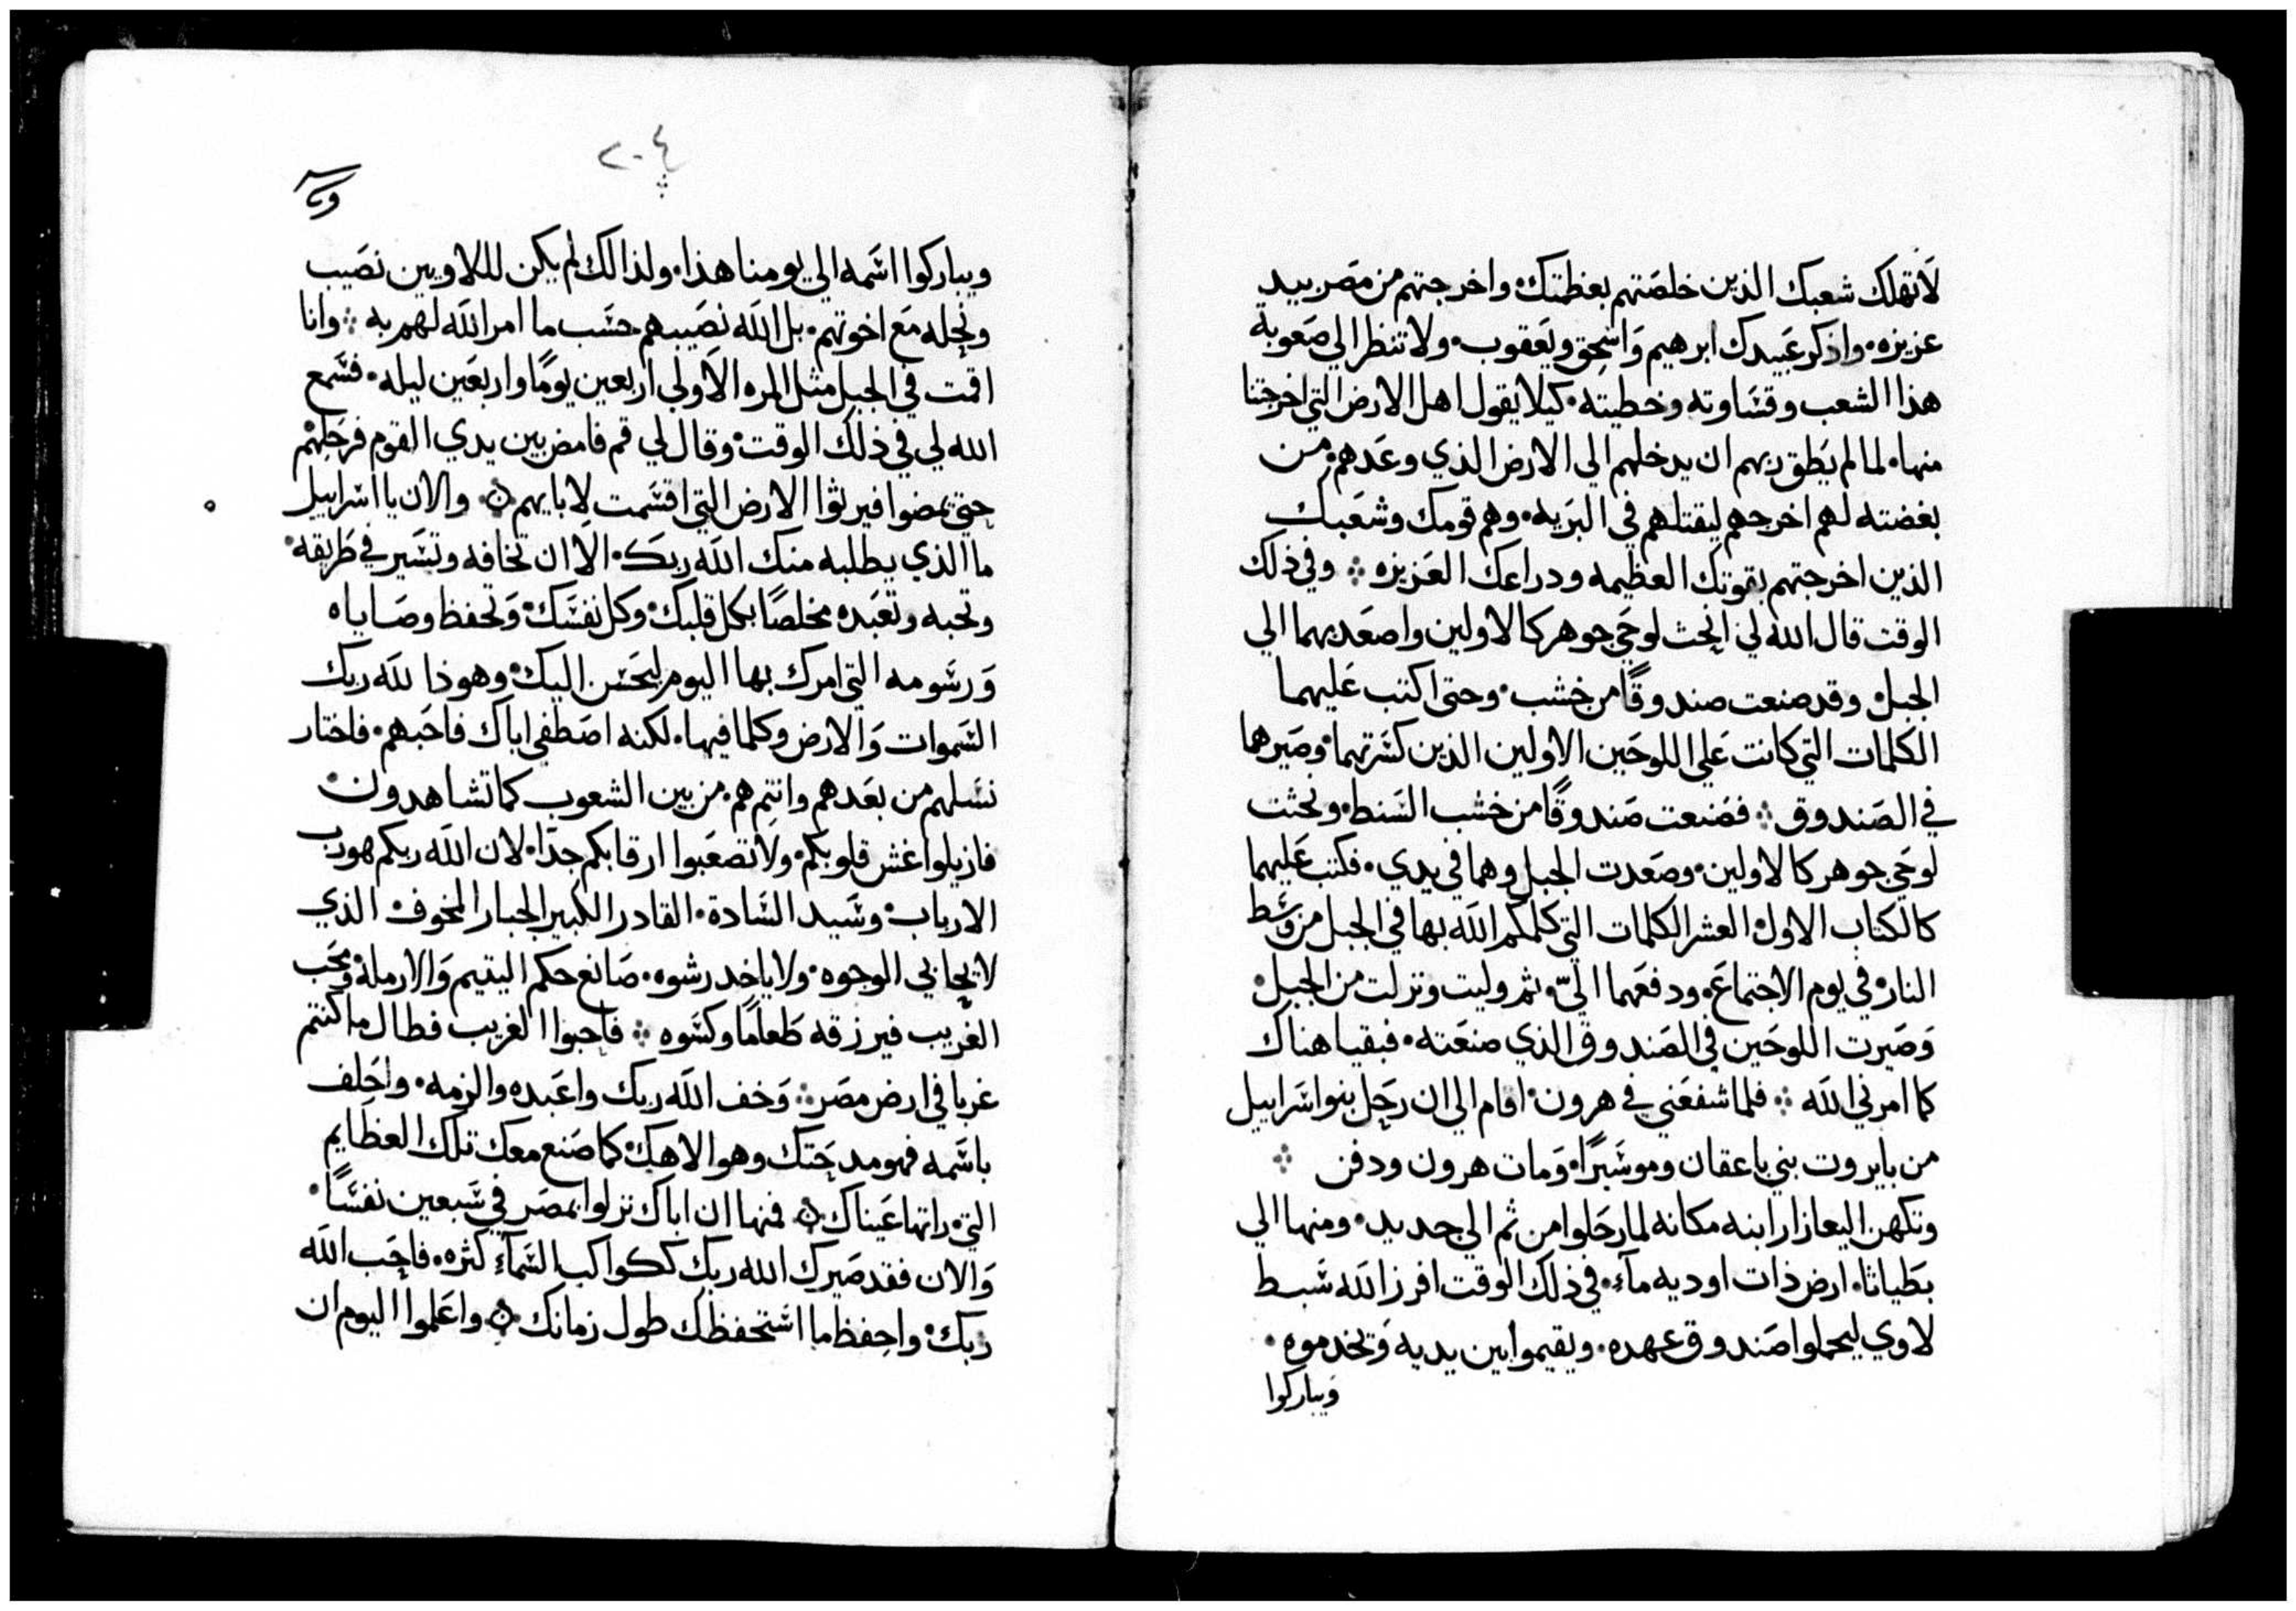 لاتهلك شعبك الذين خلصتهم بعظمتك واخرجتهم من مصر بيد
عزيزه واذكر عبيدك ابرهيم واسحق ويعقوب ولا تنظر الي صعوبة
هذا الشعب وقساوته وخطيته كيلا يقول اهل الارض التي اخرجتنا
منها لما لم يطق ربهم ان يدخلهم الي الارض الذي وعدهم من
بغضته لهم اخرجهم ليقتلهم في البريه وهم قومك وشعبك
الذين اخرجتهم بقوتك العظيمه ودراعك العزيزه وفي ذلك
الوقت قال الله لي انحت لوحي جوهر كالاولين واصعد بهما الي
الجبل وقد صنعت صندوقًا من خشب وحتى اكتب عليهما
الكلمات التي كانت علي اللوحين الاولين الذين كسرتهما وصيرهما
في الصندوق فصنعت صندوقًا من خشب السنط ونحثت
لوحي جوهر كالاولين وصعدت الجبل وهما في يدي فكتب عليهما
كالكتاب الاول العشر الكلمات التي كلمكم الله بها في الجبل من وسط
النار في يوم الاجتماع ودفعهما اليّ ثم وليت ونزلت من الجبل
وصيرت اللوحين في الصندوق الذي صنعته فبقيا هناك
كما امرني الله فلما شفعني في هرون اقام الي ان رحل بنو اسراييل
من بايروت بني ياعقان وموسيرًا ومات هرون ودفن
وتكهن اليعازار ابنه مكانه لما رحلوا من ثم الي جديد ومنها الي
بطياثا ارض ذات اوديه مآء في ذلك الوقت افرز الله سبط
لاوي ليحملوا صندوق عهده ويقيموا بين يديه وتخدموه
ويباركوا
٢٠٤
ويباركوا اسمه الي يومنا هذا ولذالك لم يكن للاويين نصيب
ونحله مع اخوتهم بل الله نصيبهم حسب ما امر الله لهم به وانا
اقمت في الجبل مثل المره الاولي اربعين يومًا واربعين ليله فسمع
الله لي في ذلك الوقت وقال لي قم فامض بين يدي القوم فرحلهم
حتي يمضوا فيرثوا الارض التي اقسمت لابايهم والان يا اسراييل
ما الذي يطلبه منك الله ربك الا ان تخافه وتسير في طريقه
وتحبه وتعبده مخلصًا بكل قلبك وكل نفسك وتحفظ وصاياه
ورسومه التي امرك بها اليوم ليحسن اليك وهوذا لله ربك
السموات والارض وكلما فيها لكنه اصطفي اباك فاحبهم فاختار
نسلهم من بعدهم وانتم هم من بين الشعوب كما تشاهدون
فازيلوا غش قلوبكم ولا تصعبوا ارقابكم جدًا لان الله ربكم هو رب
الارباب وسيد السادة القادر الكبير الجبار المخوف الذي
لا يحابي الوجوه ولا ياخد رشوه صانع حكم اليتيم والارملة ومحب
الغريب فيرزقه طعامًا وكسوه فاحبوا الغريب فطال ما كنتم
غربا في ارض مصر وخف الله ربك واعبده والزمه واحلف
باسمه فهو مدحتك وهو الاهك كما صنع معك تلك العظايم
التي راتها عيناك فمنها ان اباك نزلوا بمصر في سبعين نفسًا
والان فقد صيرك الله ربك ككواكب السمآء كثره فاحب الله
ربك واحفظ ما استحفظك طول زمانك واعلموا اليوم ان